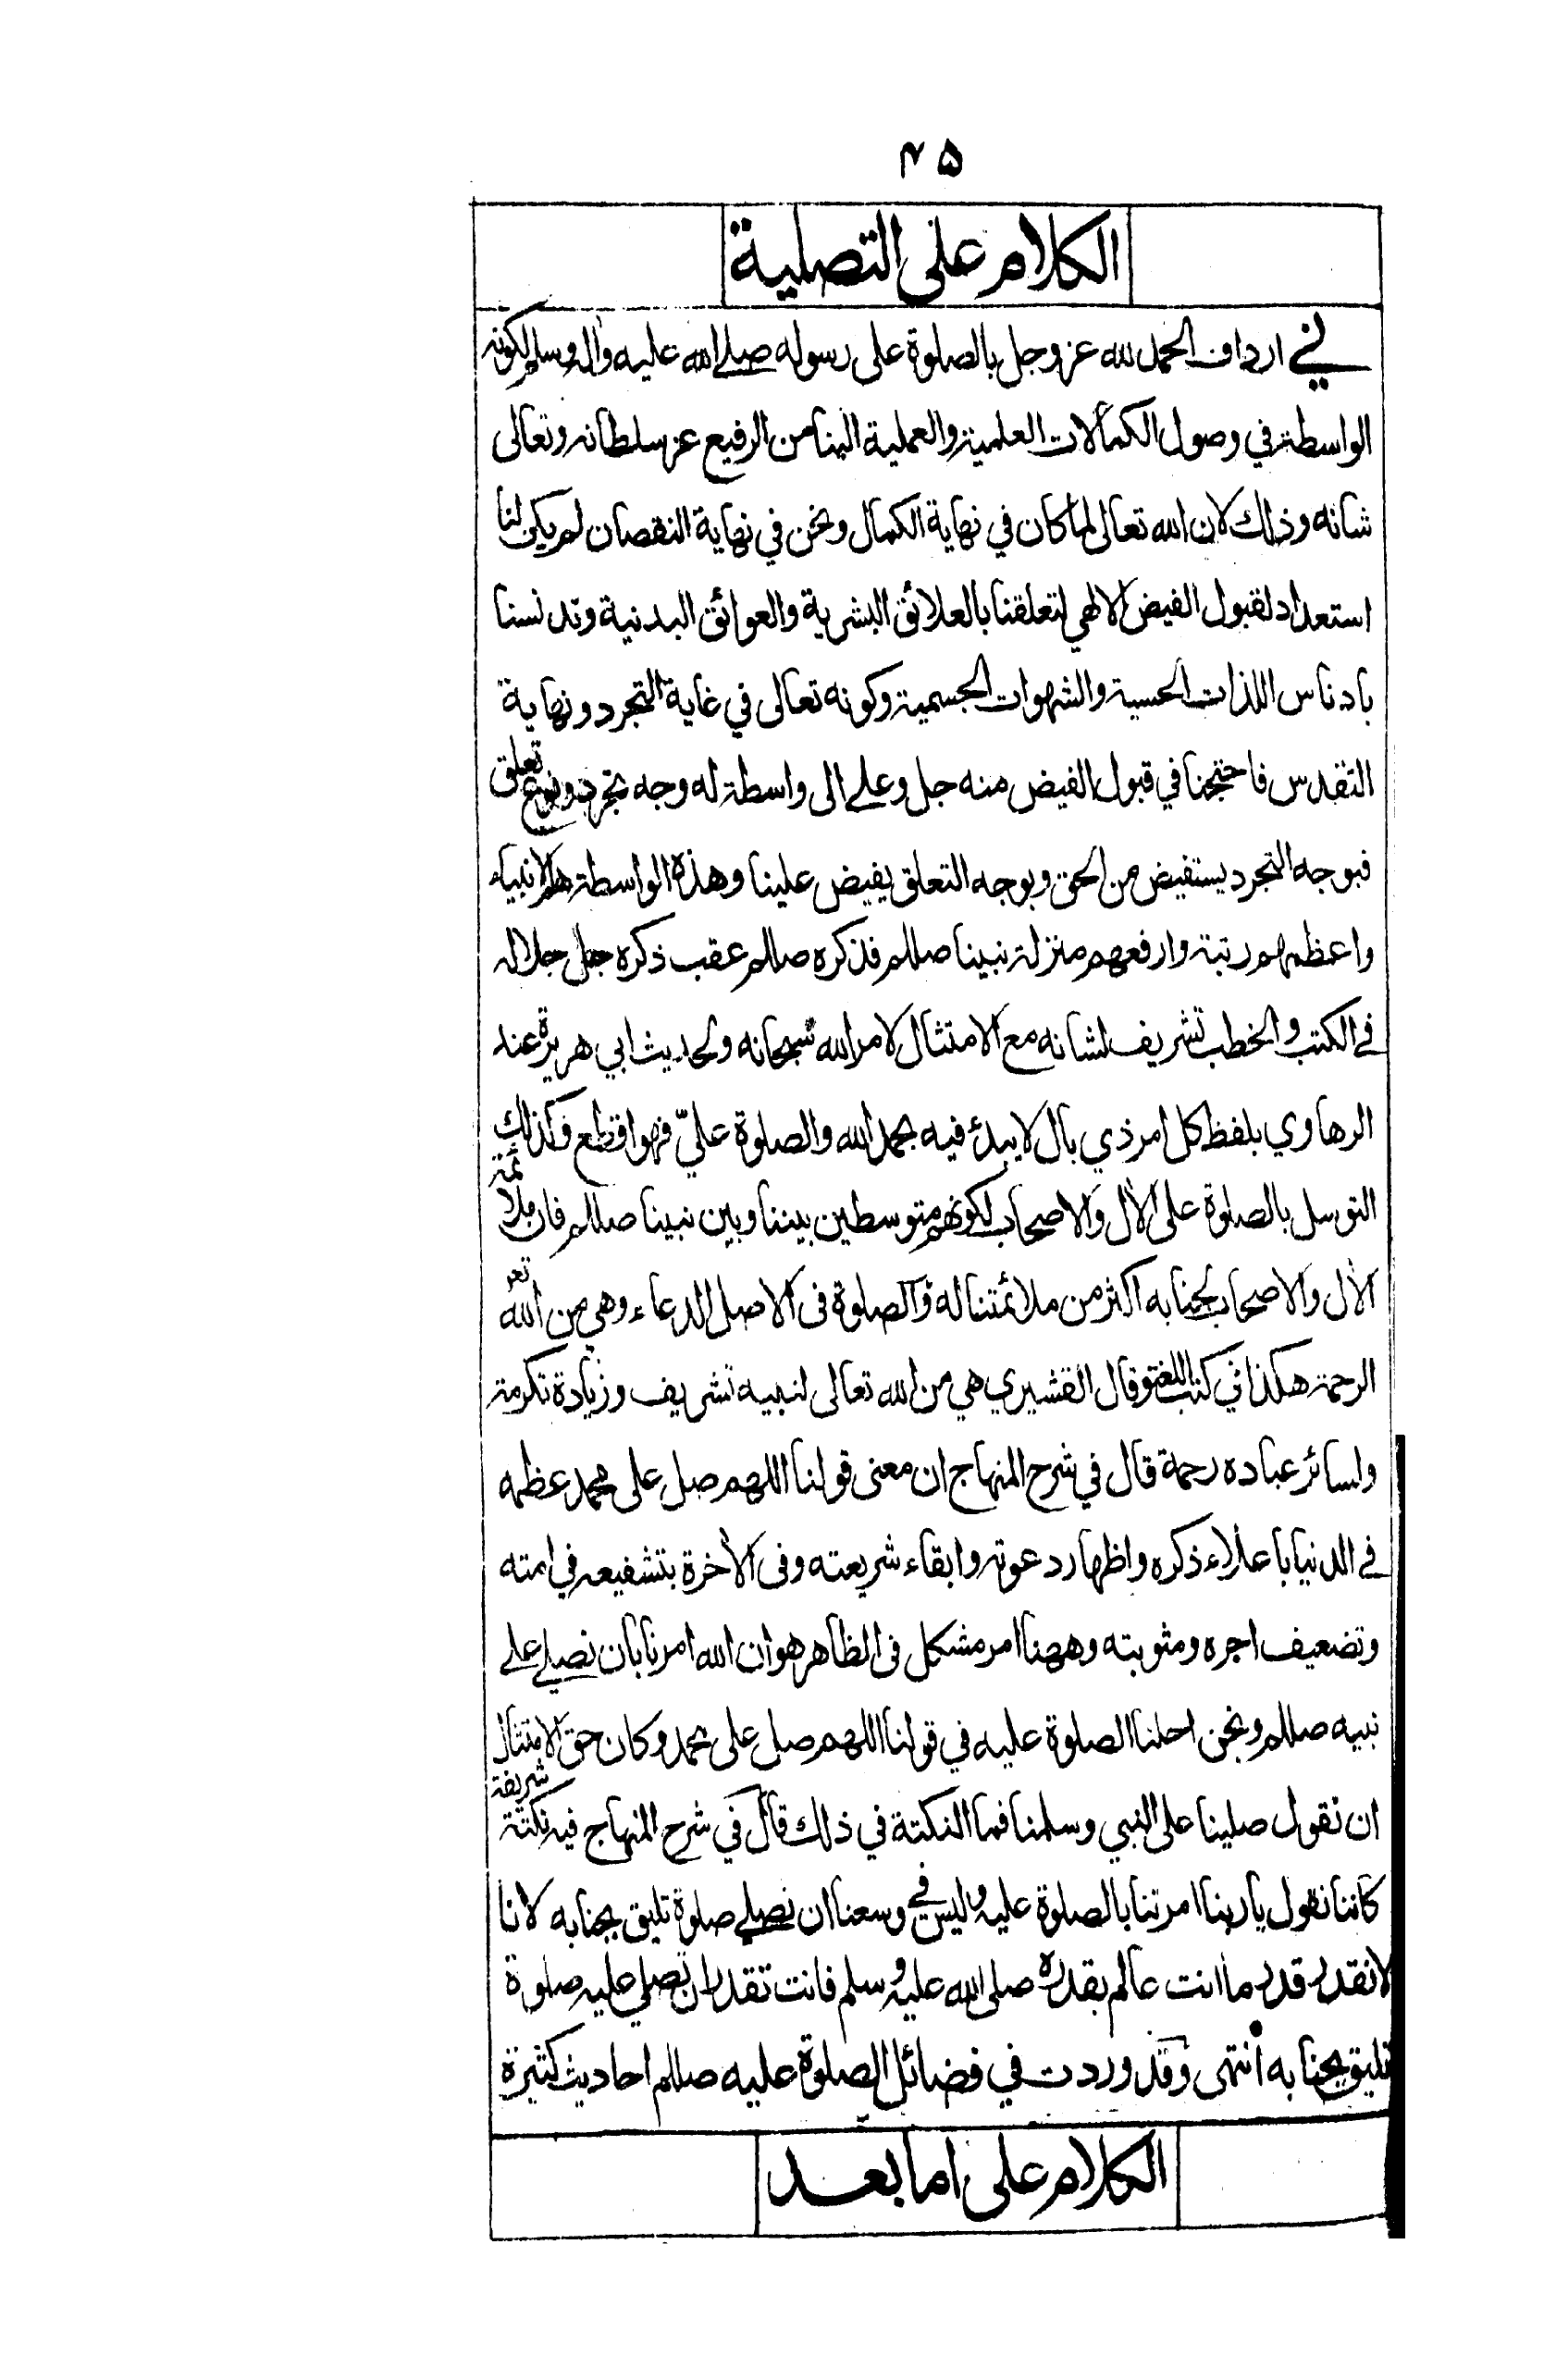 ٤٥
الكلام على التصلية
في ارداف الحمد لله عز وجل بالصلوة على رسوله صلى الله عليه واله وسلم لكونه
الواسطة في وصول الكمالات العلمية والعملية الينا من الرفيع عز سلطانه وتعالى
شانه وذلك لان الله تعالى لما كان في نهاية الكمال ونحن في نهاية النقصان لم يكن لنا
استعداد لقبول الفيض الالهي لتعلقنا بالعلائق البشرية والعوائق البدنية وتدنسنا
بادناس اللذات الحسية والشهوات الجسمية وكونه تعالى في غاية التجرد ونهاية
التقدس فاحتجنا في قبول الفيض منه جل وعلى الى واسطة له وجه تجرد ونوع تعلق
فبوجه التجرد يستفيض من الحق وبوجه التعلق يفيض علينا وهذه الواسطة هم الانبياء
واعظمهم رتبة وارفعهم منزلة نبينا صللم فذكره صللم عقب ذكره جل جلاله
في الكتب والخطب تشريف لشانه مع الامتثال لامر الله سبحانه ولحديث ابي هريرة عند
الرهاوي بلفظ كل امر ذي بال لا يبدء فيه بحمد الله والصلوة عليّ فهو اقطع وكذلك
التوسل بالصلوة على الال والاصحاب لكونهم متوسطين بيننا وبين نبينا صللم فان ملائمة
الال والاصحاب لجنابه اكثر من ملائمتنا له والصلوة في الاصل الدعاء وهي من الله تعر
الرحمة هكذا في كتب اللغة وقال القشيري هي من الله تعالى لنبيه تشريف وزيادة تكرمة
ولسائر عباده رحمة قال في شرح المنهاج ان معنى قولنا اللهم صل على محمد عظمه
في الدنيا باعلاء ذكره واظهار دعوته وابقاء شريعته وفى الأخرة بتشفيعه في امته
وتضعيف اجره ومثوبته وههنا امر مشكل فى الظاهر هو ان الله امرنا بان نصلي على
نبيه صللم ونحن احلنا الصلوة عليه في قولنا اللهم صل على محمد وكان حق الامتثال
ان نقول صلينا على النبي وسلمنا فما النكتة في ذلك قال في شرح المنهاج فيه نكتة شريفة
كاننا نقول يا ربنا امرتنا بالصلوة عليه وليس في وسعنا ان نصلي صلوة تليق بجنابه لانا
لا نقدر قدر ما انت عالم بقدره صلى الله عليه وسلم فانت تقدر ان تصلي عليه صلوة
تليق بجنابه انتهى وقد وردت في فضائل الصلوة عليه صللم احاديث كثيرة
الكلام على اما بعد